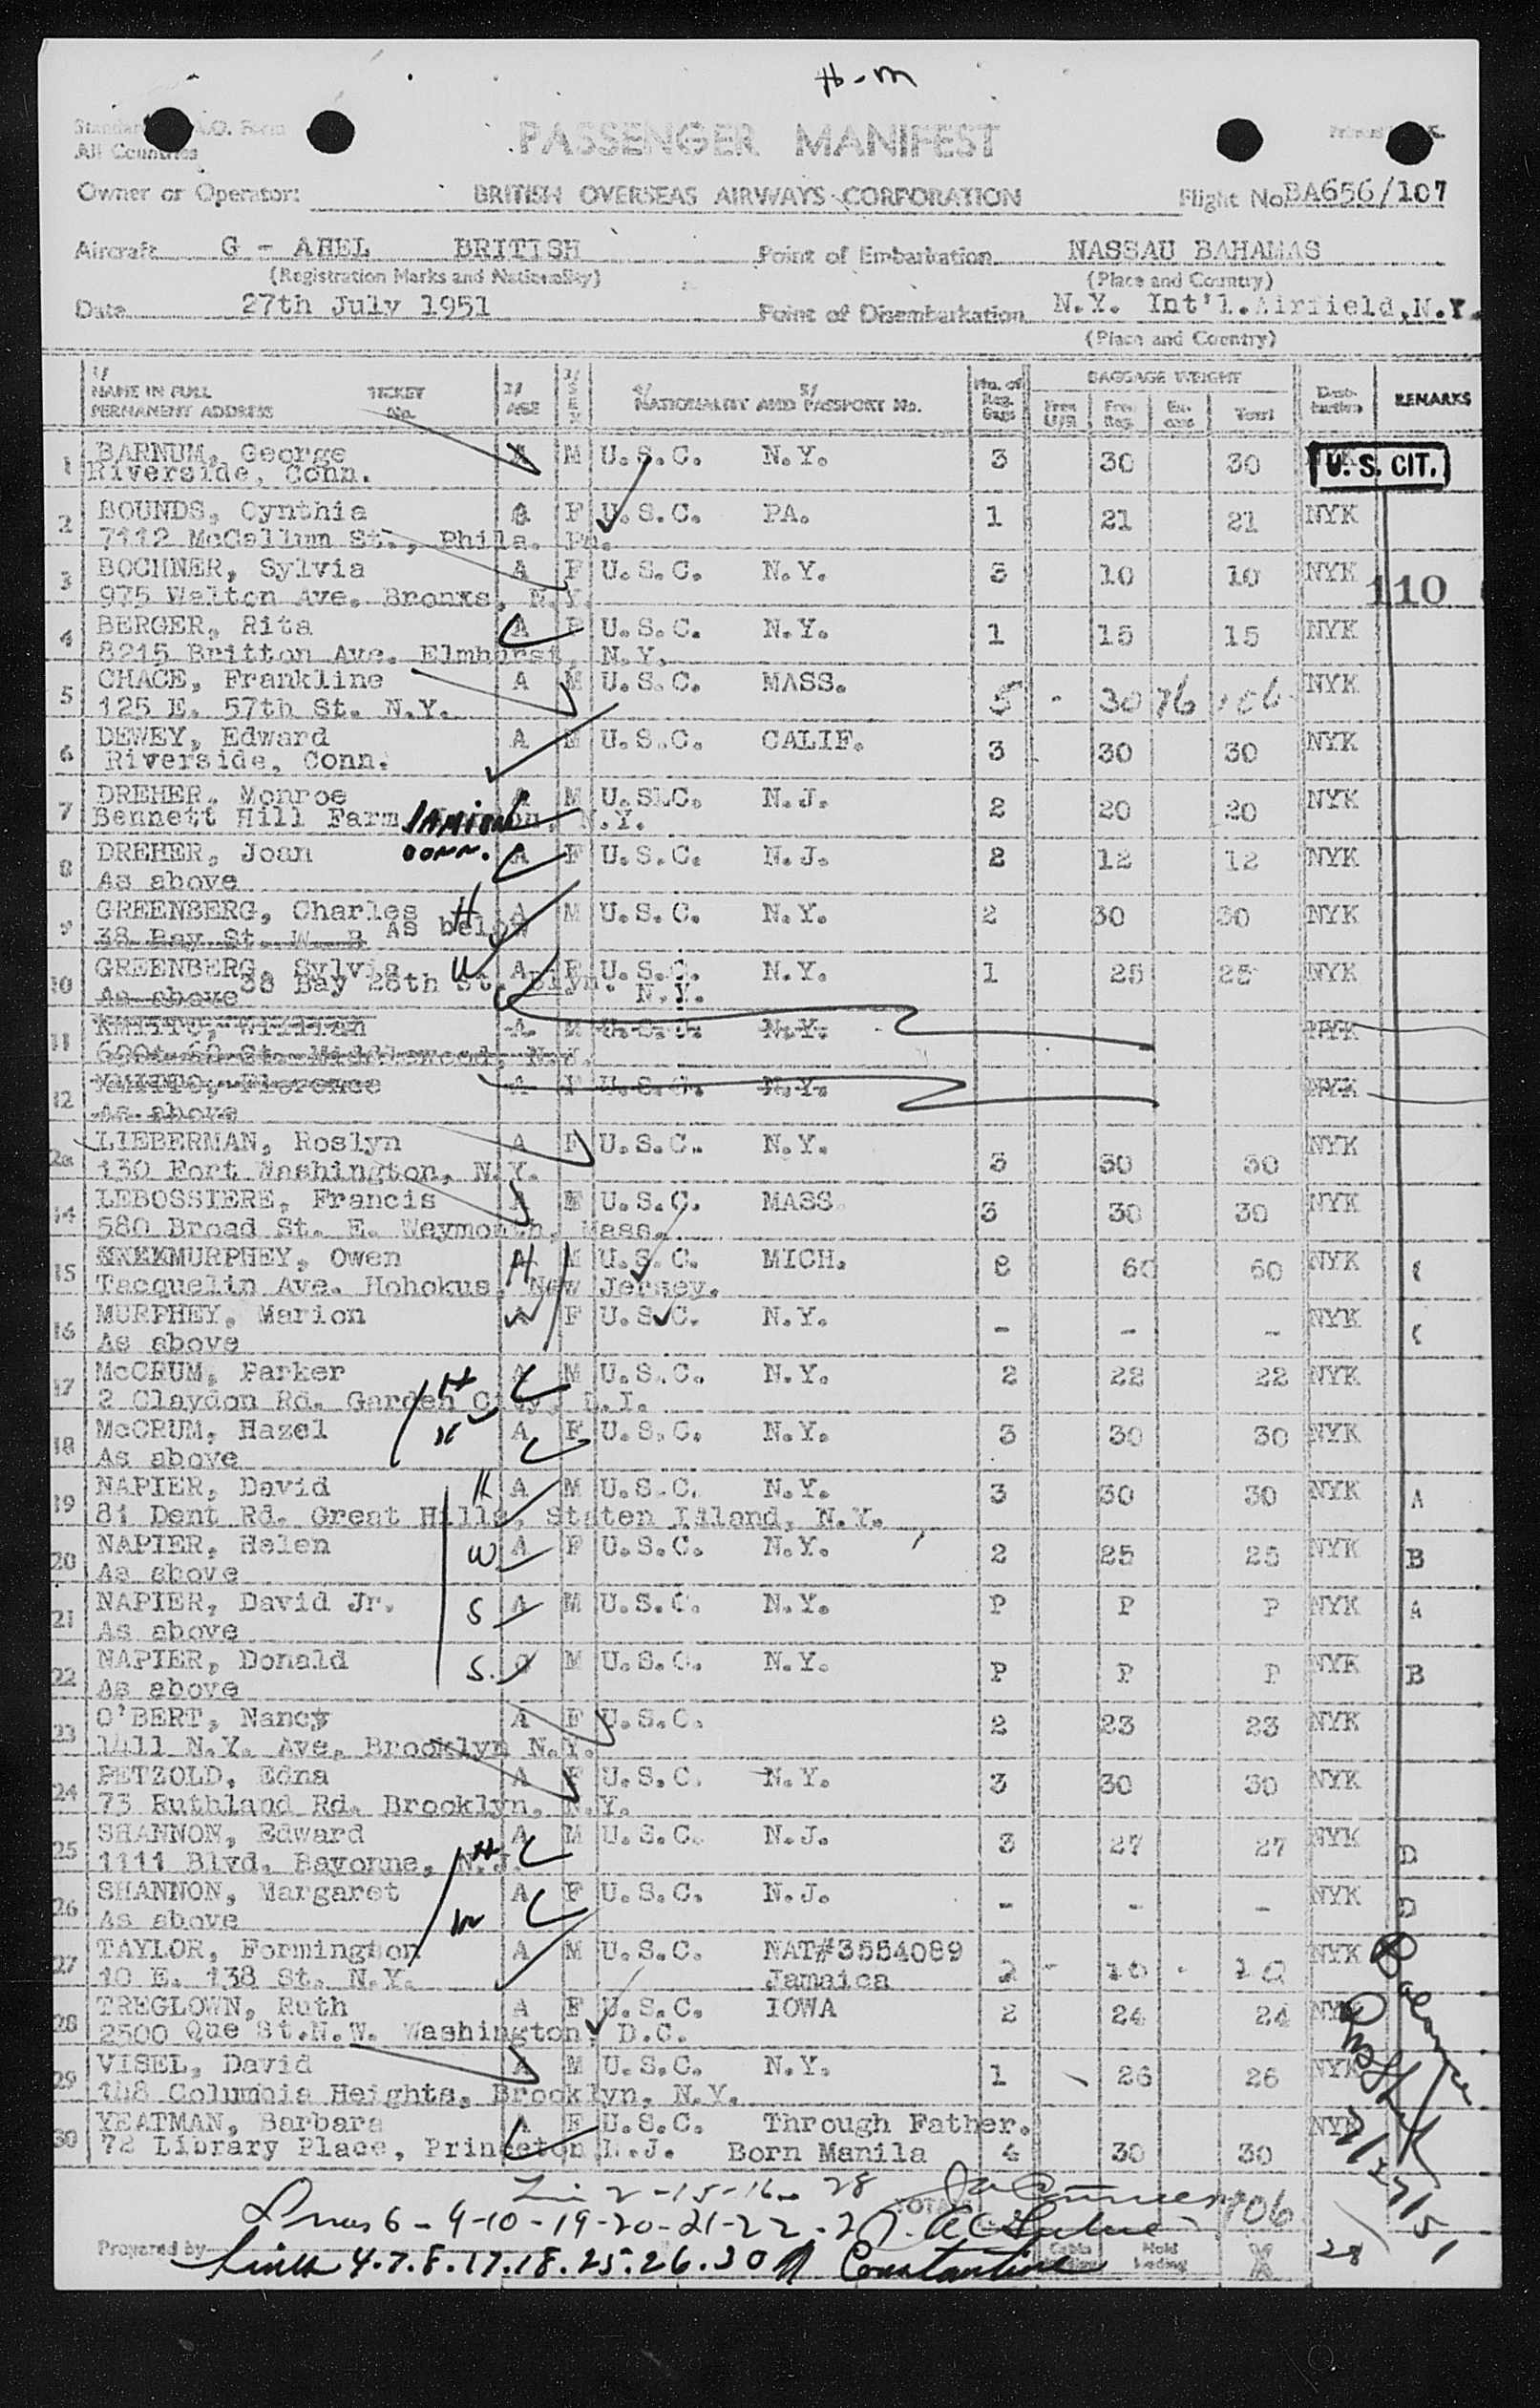 H-M
Standard I.C.A.O. Form
All Countries
PASSENGER MANIFEST
Owner or Operator: BRITISH OVERSEAS AIRWAYS CORPORATION Flight No. BA656/107
Aircraft G - AHEL BRITISH Point of Embarkation NASSAU BAHAMAS
(Registration Marks and Nationality) (Place and Country)
Date 27th July 1951 Point of Disembarkation N.Y. Int'l.Airfield,N.Y.
(Place and Country)
1/ NAME IN FULL PERMANENT ADDRESS TICKET No. 2/ AGE 3/ SEX 4/ NATIONALITY AND 5/ PASSPORT No. No. of Reg. Bags BAGGAGE WEIGHT Free Reg. Total REMARKS
1 BARNUM, George A M U.S.C. N.Y. 3 30 30 U. S. CIT.
Riverside, Conn.
2 BOUNDS, Cynthia F U.S.C. PA. 1 21 21 NYK
7112 McCallum St., Phila. Pa.
3 BOCHNER, Sylvia A F U.S.C. N.Y. 3 10 10 NYK 110
975 Walton Ave. Bronxs, N.Y.
4 BERGER, Rita A F U.S.C. N.Y. 1 15 15 NYK
8215 Britton Ave. Elmhurst, N.Y.
5 CHACE, Frankline A M U.S.C. MASS. 5 - 30 76 106 NYK
125 E. 57th St. N.Y.
6 DEWEY, Edward A M U.S.C. CALIF. 3 30 30 NYK
Riverside, Conn.
7 DREHER, Monroe A M U.SLC. N.J. 2 20 20 NYK
Bennett Hill Farm, N.Y.
8 DREHER, Joan CONN. A F U.S.C. N.J. 2 12 12 NYK
As above
9 GREENBERG, Charles H A M U.S.C. N.Y. 2 30 30 NYK
38 Bay St. W. B As below
10 GREENBERG, Sylvia W A F U.S.C. N.Y. 1 25 25 NYK
As above 38 Bay 28th St. Blyn. N.Y.
11 William A M U.S.C. N.Y. NYK
12 Florence A F U.S.C. N.Y. NYK
As above
LIEBERMAN, Roslyn A F U.S.C. N.Y. 3 30 30 NYK
130 Fort Washington, N.Y.
14 LEBOSSIERE, Francis A U.S.C. MASS. 3 30 30 NYK
580 Broad St. E. Weymouth, Mass.
15 MURPHEY, Owen H M U.S.C. MICH. 60 60 NYK C
Tacquelin Ave. Hohokus, New Jersey.
16 MURPHEY, Marion W F U.S.C. N.Y. - - - NYK C
As above
17 McCRUM, Parker H A M U.S.C. N.Y. 2 22 22 NYK
2 Claydon Rd. Garden City, L.I.
18 McCRUM, Hazel W A F U.S.C. N.Y. 3 30 30 NYK
As above
19 NAPIER, David H A M U.S.C. N.Y. 3 30 30 NYK A
81 Dent Rd. Great Hills, Staten Island, N.Y.
20 NAPIER, Helen W A F U.S.C. N.Y. 2 25 25 NYK B
As above
21 NAPIER, David Jr. S A M U.S.C. N.Y. P P P NYK A
As above
22 NAPIER, Donald S. M U.S.C. N.Y. P P P NYK B
As above
23 O'BERT, Nancy A F U.S.C. 2 23 23 NYK
1411 N.Y. Ave. Brooklyn N.Y.
24 PETZOLD, Edna A F U.S.C. N.Y. 3 30 30 NYK
73 Ruthland Rd. Brooklyn, N.Y.
25 SHANNON, Edward H A M U.S.C. N.J. 3 27 27 NYK D
1111 Blvd. Bayonne, N.J.
26 SHANNON, Margaret W A F U.S.C. N.J. - - - NYK D
As above
27 TAYLOR, Formington A M U.S.C. NAT#3554089 2 - 10 - 10 NYK
10 E. 138 St. N.Y. Jamaica
28 TREGLOWN, Ruth A F U.S.C. IOWA 2 24 24 NYK
2500 Que St.N.W. Washington, D.C.
29 VISEL, David A M U.S.C. N.Y. 1 26 26 NYK
148 Columbia Heights, Brooklyn, N.Y.
30 YEATMAN, Barbara A F U.S.C. Through Father. 4 30 30 NYK
72 Library Place, Princeton N.J. Born Manila
Balance
7/27/51
2-15-16-28
TOTAL 706
Lines 6-9-10-19-20-21-22-27
Prepared by
Lines 4.7.8.17.18.25.26.30 Constantine
28